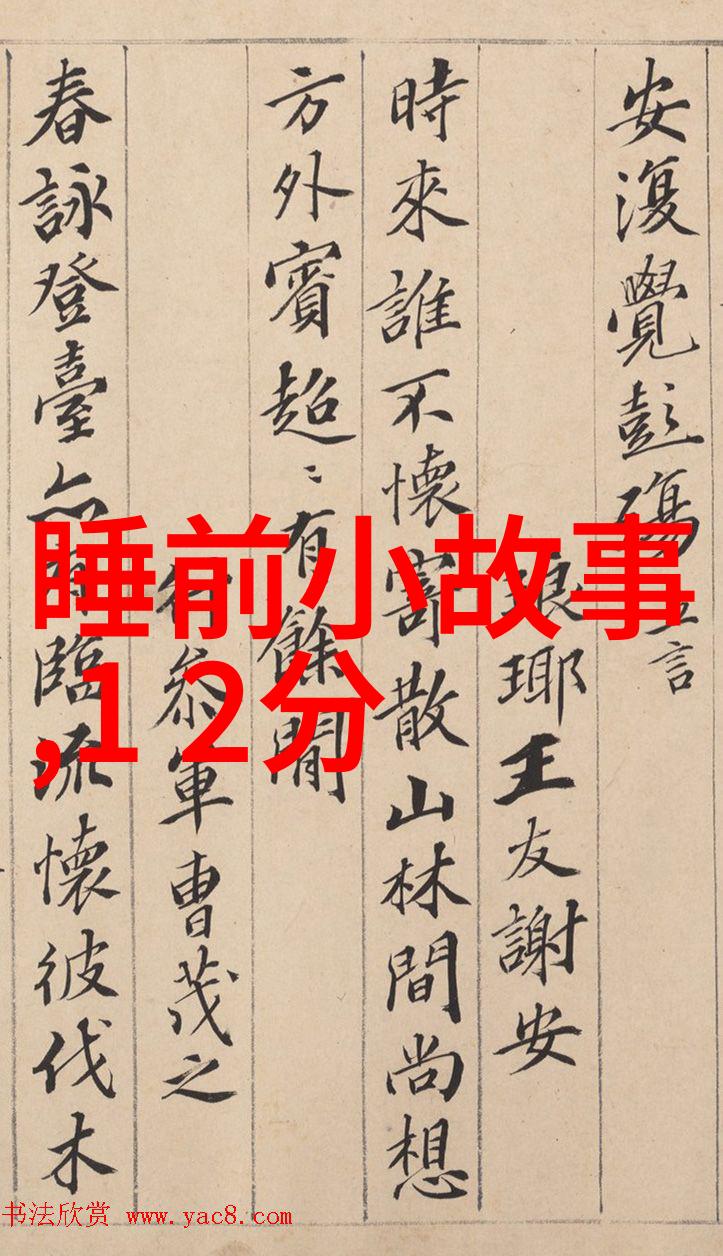 安復覺彭殤言
琅瑯王友謝安
時來誰不懷寄散山林間尚想
方外賓超〻有餘閒
參軍曹茂之
春詠登臺亦臨流懷彼伐木
睡前小故事
,1 2分
书法欣赏 www.yac8.com